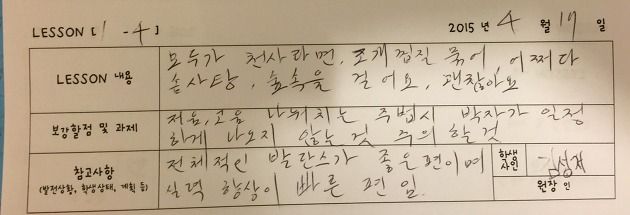 LESSON [ 1 - 4 ] 2015 년 4 월 17 일
LESSON 내용
모두가 천사라면, 조개껍질 묶어, 어쩌다
솜사탕, 숲속을 걸어요, 괜찮아요
보강할점 및 과제
저음, 고음 나뉘치는 주법시 박자가 일정
하게 나오지 않는 것 주의 할 것
참고사항
(발전상황, 학생상태, 계획 등)
전체적인 발란스가 좋은편이며
실력 향상이 빠른 편 임.
학생
사인
원장 인